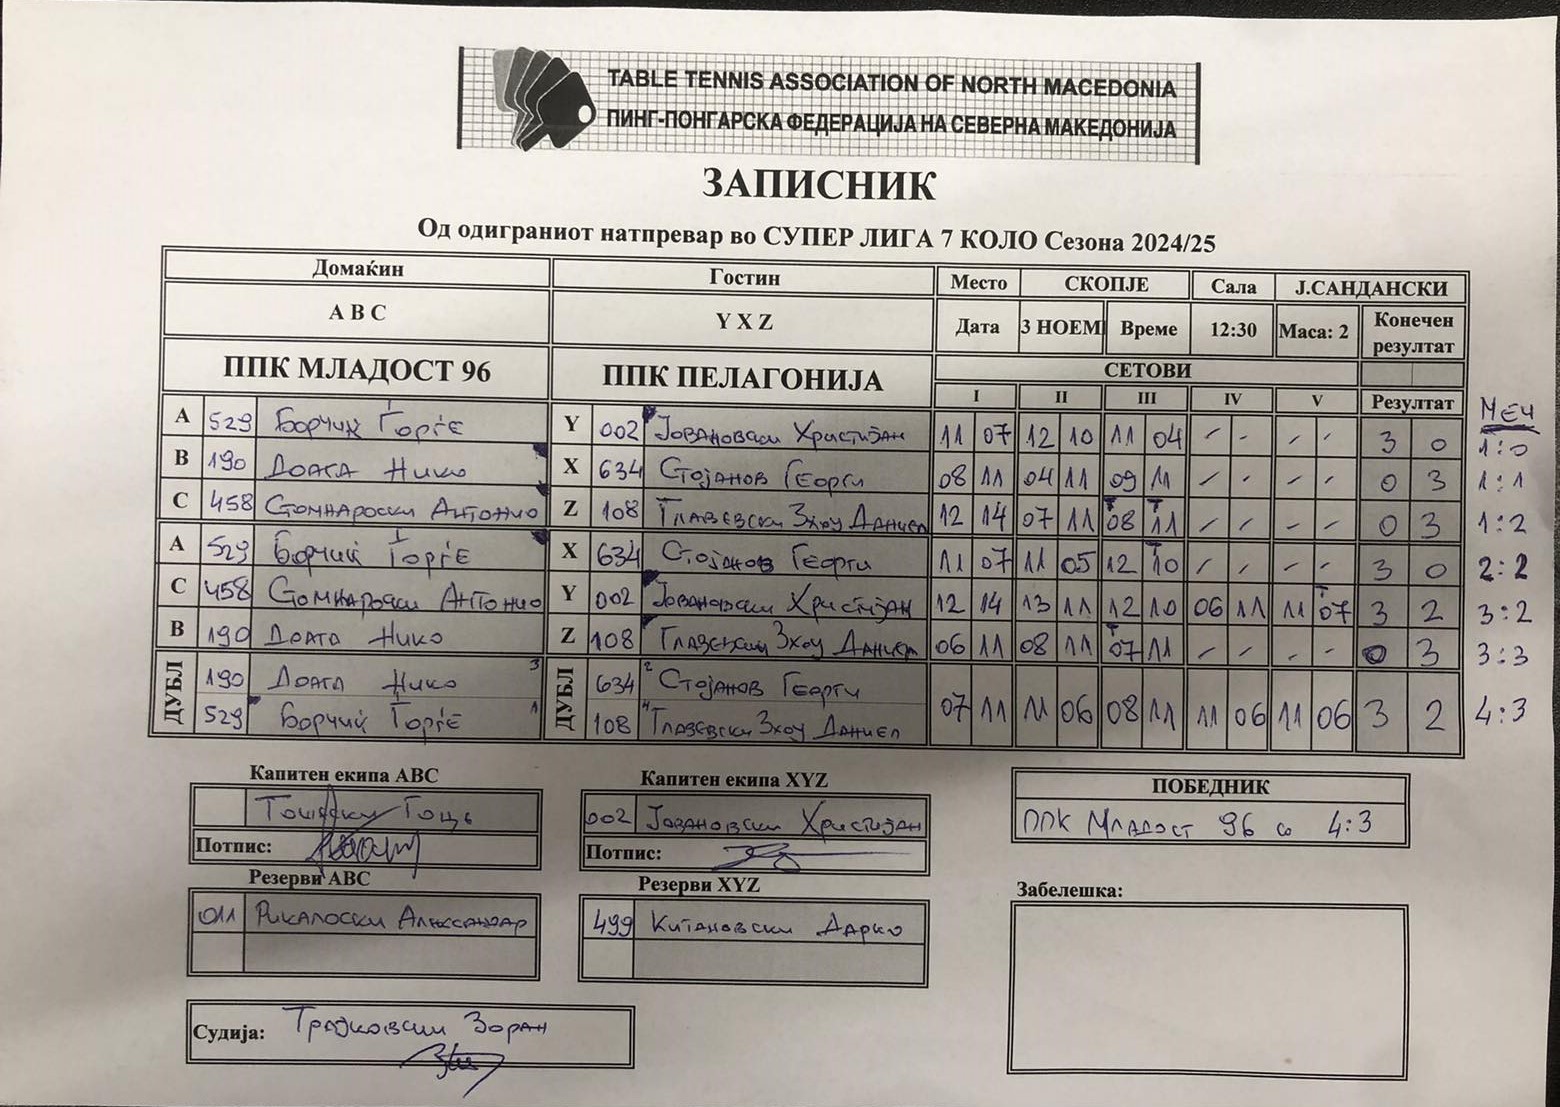 TABLE TENNIS ASSOCIATION OF NORTH MACEDONIA
ПИНГ-ПОНГАРСКА ФЕДЕРАЦИЈА НА СЕВЕРНА МАКЕДОНИЈА
ЗАПИСНИК
Од одиграниот натпревар во СУПЕР ЛИГА 7 КОЛО Сезона 2024/25
Домаќин Гостин Место СКОПЈЕ Сала Ј.САНДАНСКИ
A B C Y X Z Дата 3 НОЕМ Време 12:30 Маса: 2 Конечен резултат
ППК МЛАДОСТ 96 ППК ПЕЛАГОНИЈА СЕТОВИ
I II III IV V Резултат МЕЧ
A 529 Борчиќ Ѓорѓе Y 002 Јовановски Христијан 11 07 12 10 11 04 - - - - 3 0 1:0
B 190 Доага Нико X 634 Стојанов Георги 08 11 04 11 09 11 - - - - 0 3 1:1
C 458 Стомнароски Антонио Z 108 Глазевски Зхоу Даниел 12 14 07 11 08 11 - - - - 0 3 1:2
A 529 Борчиќ Ѓорѓе X 634 Стојанов Георги 11 07 11 05 12 10 - - - - 3 0 2:2
C 458 Стомнароски Антонио Y 002 Јовановски Христијан 12 14 13 11 12 10 06 11 11 07 3 2 3:2
B 190 Доага Нико Z 108 Глазевски Зхоу Даниел 06 11 08 11 07 11 - - - - 0 3 3:3
ДУБЛ 190 Доага Нико 3 ДУБЛ 634 2 Стојанов Георги 07 11 11 06 08 11 11 06 11 06 3 2 4:3
529 Борчиќ Ѓорѓе 1 108 4 Глазевски Зхоу Даниел
Капитен екипа ABC Капитен екипа XYZ ПОБЕДНИК
Гоце 002 Јовановски Христијан ППК Младост 96 со 4:3
Потпис: Потпис:
Резерви ABC Резерви XYZ Забелешка:
011 Рикалоски Александар 499 Китановски Дарко
Судија: Трајковски Зоран